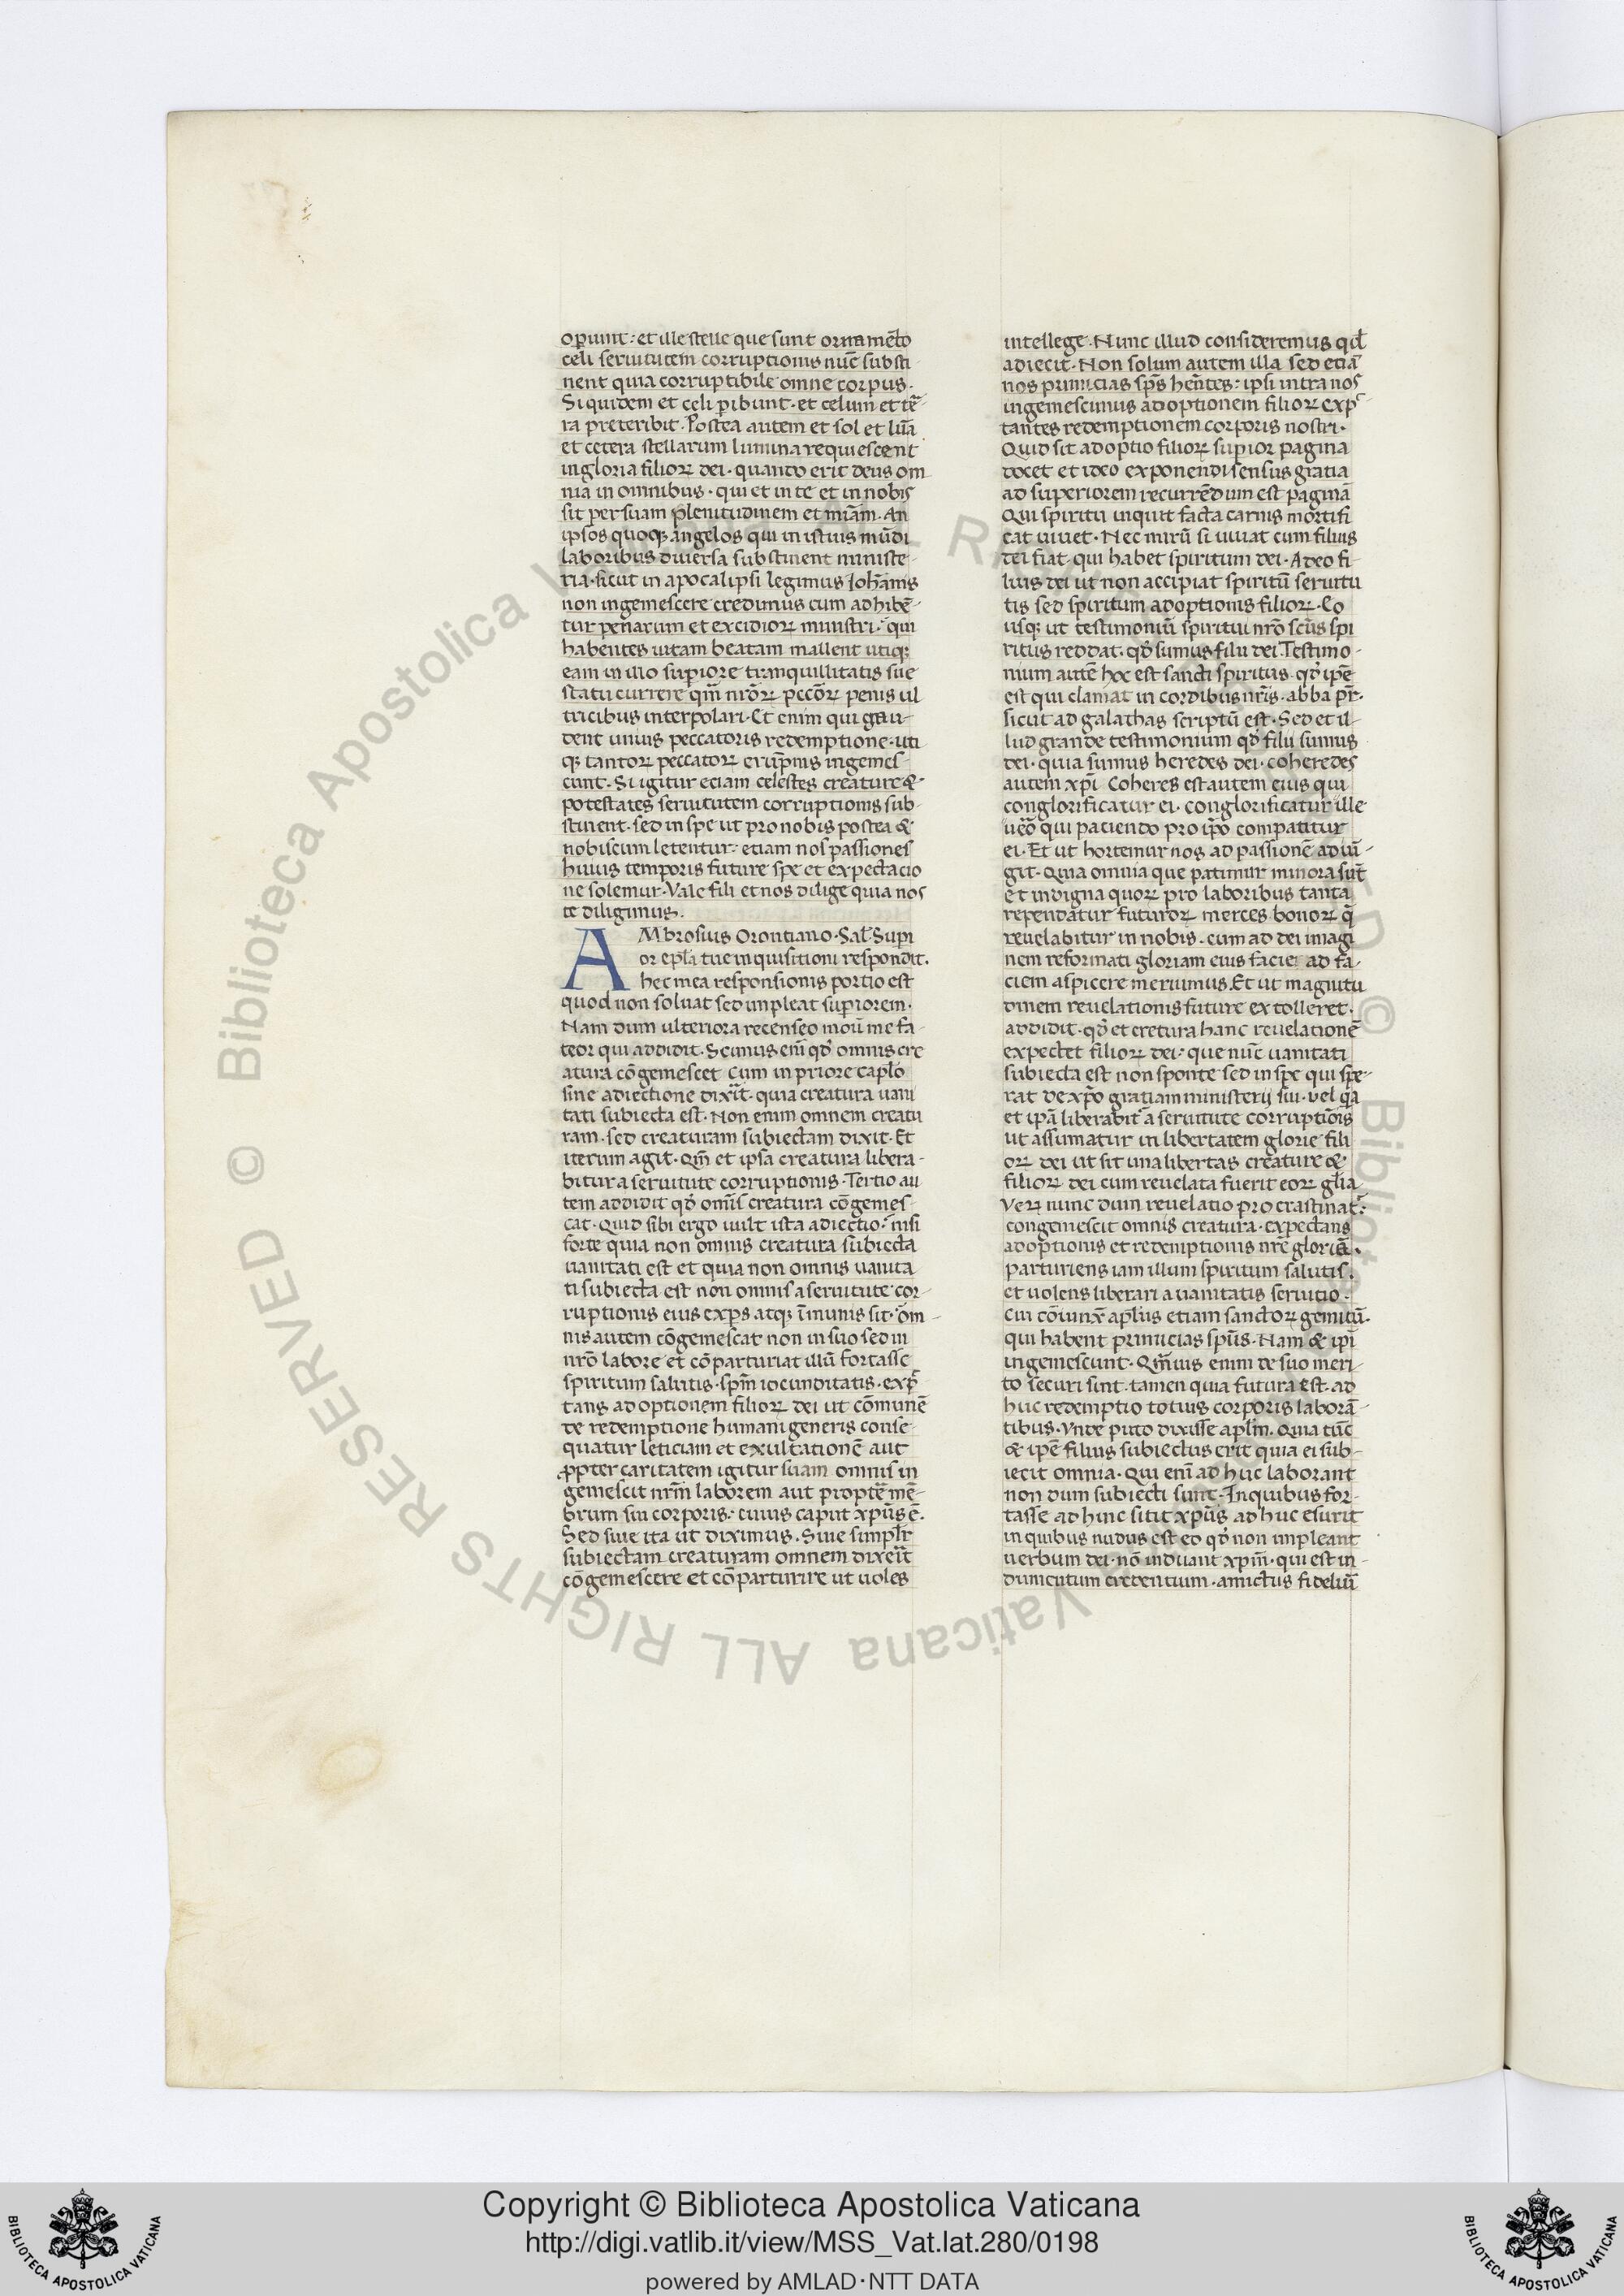 oꝑiunt: et ille stelle que sunt ornamẽto
celi seruitutem corruptionis nũc substi
nent quia corruptibile omne corpus.
Siquidem et celi ꝑibunt. et celum et tẽr-
ra preteribit. Postea autem et sol et lũa
et cetera stellarum lumina requiescent
in gloria filioꝝ dei. quando erit deus om
nia in omnibus. qui et in te et in nobis
sit per suam plenitudinem et miã̃m. An
ipsos quoqꝫ angelos qui in istius mũdi
laboribus diuersa substinent ministe-
ria. sicut in apocalipsi legimus Ioħanis
non ingemescere credimus cum adhibẽ-
tur penarum et excidioꝝ ministri: qui
habentes uitam beatam mallent utiqꝫ
eam in illo suꝑiore tranquillitatis sue
statu currere qm̃ nr̃oꝝ pcc̃oꝝ penis ul
tricibus interpolari. Et enim qui gau-
dent unius peccatoris redemptione. uti
qꝫ tantoꝝ peccatoꝝ erũpnis ingemes-
cunt. Si igitur eciam celestes creature &
potestates seruitutem corruptionis sub-
stinent. sed in spe ut pro nobis postea &
nobiscum letentur: etiam nos passiones
huius temporis future spe et expectacio
ne solemur. Vale fili et nos dilige quia nos
te diligimus.
AMbrosius Orontiano. Sal̃. Supi
or epl̃a tue inquisitioni respondit.
hec mea responsionis portio est
quod non soluat sed impleat suꝑiorem.
Nam dum ulteriora recenseo moũi me fa-
teor qui addidit. Scimus em̃ qd̃ omnis cre
atura cõgemescet Cum in priore capl̃o
sine adiectione dixĩt. quia creatura uani
tati subiecta est. Non enim omnem creatu
ram. sed creaturam subiectam dixit. Et
iterum agit. Qm̃ et ipsa creatura libera-
bitur a seruitute corruptionis. Tertio au
tem addidit qd̃ om̃is creatura cõgemes-
cat. Quid sibi ergo uult ista adiectio: nisi
forte quia non omnis creatura subiecta
uanitati est et quia non omnis uanita
ti subiecta est non omnis a seruitute cor-
ruptionis eius exꝑs atqꝫ ĩmunis sit. om-
nis autem cõgemescat non in suo sed in
nr̃o labore et cõparturiat illũ fortasse
spiritum salutis. spm̃ iocunditatis. expc̃
tans adoptionem filioꝝ dei ut cõmunẽ
de redemptione humani generis conse-
quatur leticiam et exultationẽ aut
ꝓpter caritatem igitur suam omnis in
gemescit nr̃m laborem aut proptẽ mẽ-
brum sui corporis: cuius caput xp̃us ẽ.
Sed siue ita ut diximus. Siue simpl̃r
subiectam creaturam omnem dixeĩt
cõgemescere et cõparturire ut uoles
intellege. Nunc illud consideremus qd̃
adiecit. Non solum autem illa sed etiã
nos primicias sp̃s hẽntes: ipsi intra nos
ingemescimus adoptionem filioꝝ expc̃
tantes redemptionem corporis nostri.
Quid sit adoptio filioꝝ suꝑior pagina
docet et ideo exponendi sensus gratia
ad superiorem recurrẽdum est paginã
Qui spiritu inquit facta carnis mortifi
cat uiuet. Nec mirũ si uiuat cum filius
dei fiat. qui habet spiritum dei. Adeo fi-
lius dei ut non accipiat spiritũ seruitu
tis sed spiritum adoptionis filioꝝ. Eo
usqꝫ ut testimoniũ spiritui nr̃o scũs spi
ritus reddat. qd̃ sumus filii dei Testimo-
nium autẽ hoc est sancti spiritus. qd̃ ip̃e
est qui clamat in cordibus nr̃is. abba pr̃.
sicut ad galathas scriptũ est. Sed et il-
lud grande testimonium qd̃ filii sumus
dei. quia sumus heredes dei. coheredes
autem xp̃i Coheres est autem eius qui
conglorificatur ei. conglorificatur ille
uẽo qui paciendo pro ip̃o compatitur
ei. Et ut hortemur nos ad passionẽ adiũ-
git. Quia omnia que patimur minora sũt
et indigna quoꝝ pro laboribus tanta
rependatur futuroꝝ merces bonoꝝ q̃
reuelabitur in nobis. cum ad dei imagi
nem reformati gloriam eius facie ad fa-
ciem aspicere meruimus. Et ut magnitu
dinem reuelationis future extolleret.
addidit. qd̃ et cretura hanc reuelationẽ
expectet filioꝝ dei: que nũc uanitati
subiecta est non sponte sed in spe qui spe-
rat de xp̃o gratiam ministerij sui. vel q̃a
et ip̃a liberabit̃ a seruitute corruptiõis
ut assumatur in libertatem glorie fili
oꝝ dei ut sit una libertas creature &
filioꝝ dei cum reuelata fuerit eoꝝ gl̃ia
Veꝝ nunc dum reuelatio procrastinat̃:
congemescit omnis creatura. expectans
adoptionis et redemptionis nr̃e gloriã.
parturiens iam illum spiritum salutis.
et uolens liberari a uanitatis seruitio.
Cui cõiunx̃ apl̃us etiam sanctoꝝ gemitũ.
qui habent primicias sp̃us. Nam & ip̃i
ingemescunt. Qm̃uis enim de suo meri-
to securi sint. tamen quia futura est. ad
huc redemptio totius corporis laborã-
tibus. Vnde puto dixisse apl̃m. Quia tũc
& ip̃e filius subiectus erit quia ei sub-
iecit omnia. Qui enĩ ad huc laborant
non dum subiecti sunt. In quibus for-
tasse ad hinc sitit xp̃us ad huc esurit
in quibus nudus est eo qd̃ non impleant
uerbum dei. nõ induant xp̃m. qui est in-
dumentum credentium. amictus fideliũ
Copyright © Biblioteca Apostolica Vaticana
http://digi.vatlib.it/view/MSS_Vat.lat.280/0198
powered by AMLAD·NTT DATA
BIBLIOTECA APOSTOLICA VATICANA
BIBLIOTECA APOSTOLICA VATICANA
© Biblioteca Apostolica Vaticana ALL RIGHTS RESERVED © Biblioteca Apostolica Vaticana ALL RIGHTS RESERVED